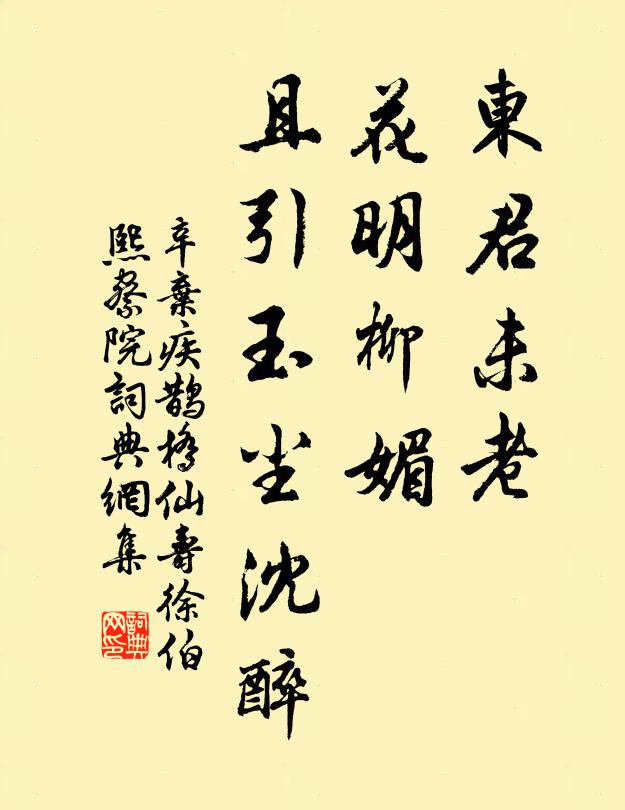 東君未老
花明柳媚
且引玉尘沈醉
辛棄疾鹊橋仙壽徐伯
熙察院詞典網集
詞典
网印